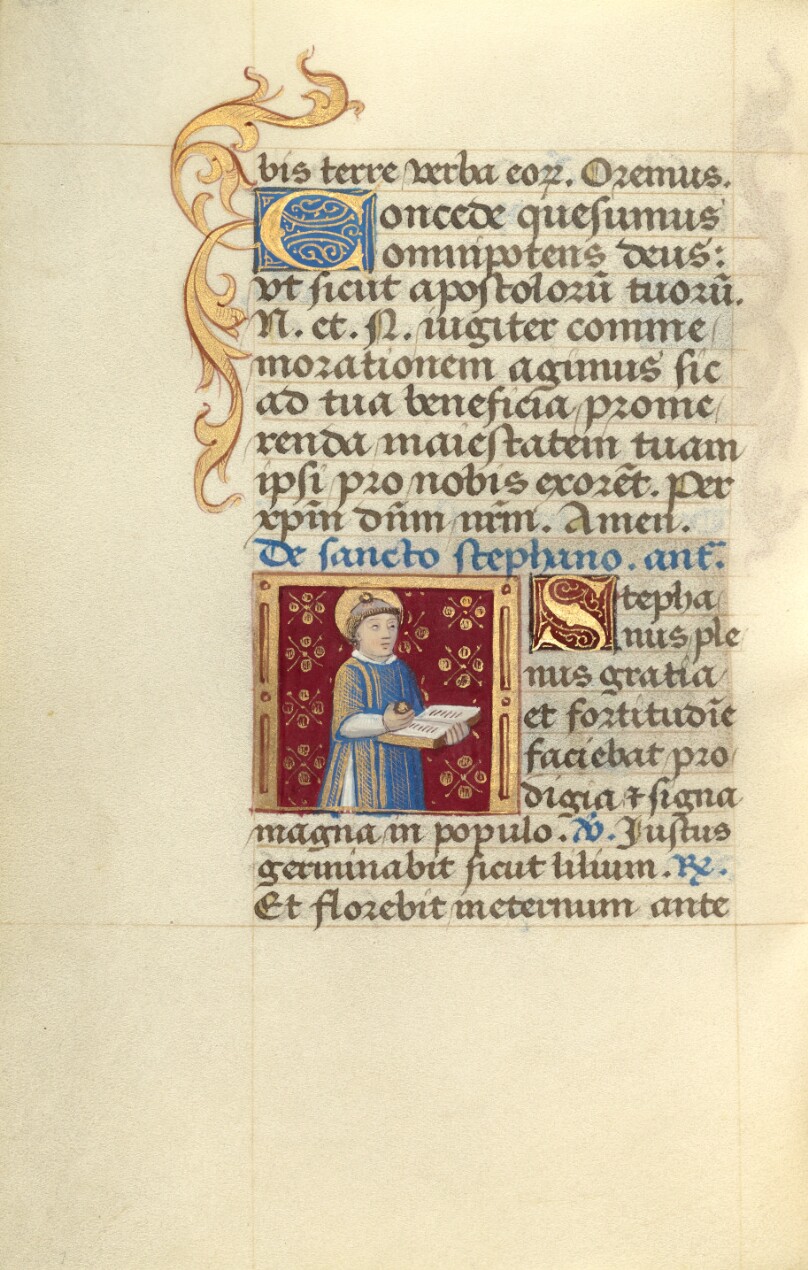 bis terre verba eoꝝ. Oremus.
Concede quesumus
omnipotens deus:
vt sicut apostolorū tuorū.
N. et. N. iugiter comme
morationem agimus sic
ad tua beneficia prome
renda maiestatem tuam
ipsi pro nobis exorēt. Per
xp̄m dn̄m nr̄m. Amen.
De sancto stephano. ant̄.
Stepha
nus ple
nus gratia
et fortitudīe
faciebat pro
digia ⁊ signa
magna in populo. ℣. Justus
germinabit sicut lilium. ℞.
Et florebit ineternum ante